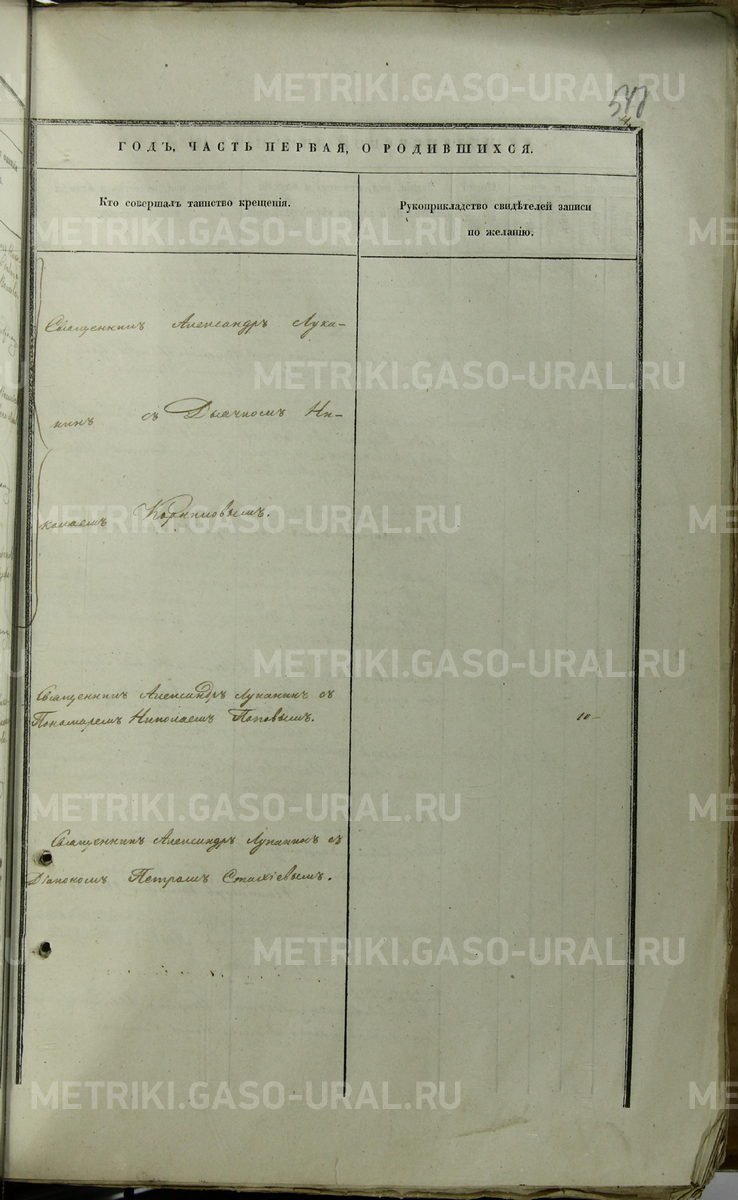 ГОДЪ, ЧАСТЬ ПЕРВАЯ, О РОДИВШИХСЯ.
Кто совершалъ таинство крещенія.
Рукоприкладство свидѣтелей записи
по желанію.
Священникъ Александръ Лука-
нинъ съ Дьячкомъ Ни-
колаемъ
Священникъ Александръ Луканинъ съ
Пономаремъ Николаемъ Поповымъ.
10-
Священникъ Александръ Луканинъ съ
Діакономъ Петромъ Стахіевымъ.
METRIKI.GASO-URAL.RU
METRIKI.GASO-URAL.RU
METRIKI.GASO-URAL.RU
METRIKI.GASO-URAL.RU
METRIKI.GASO-URAL.RU
METRIKI.GASO-URAL.RU
METRIKI.GASO-URAL.RU
METRIKI.GASO-URAL.RU